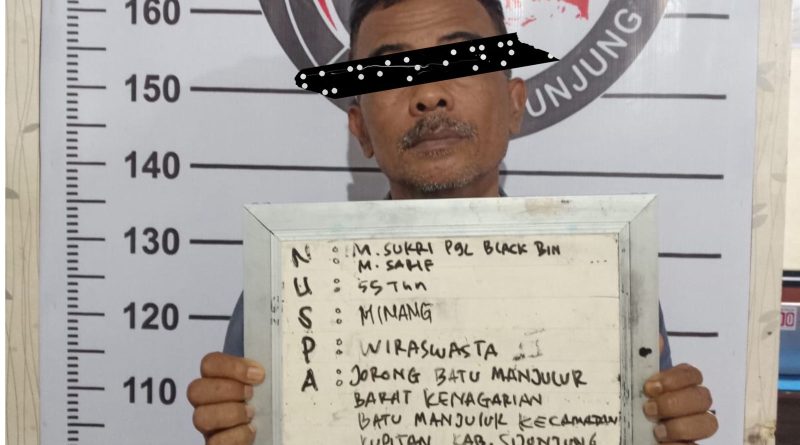 160
UNJUNG
150
140
130
120
110
N : M. SUKRI PGL BLACK BIN
M. SARIF
U : 55 THN
S : MINANG
P : WIRASWASTA
A : JORONG BATU MANJULUR
BARAT KENAGARIAN
BATU MANJULUR KECAMATAN
KUPITAN KAB. SIJUNJUNG